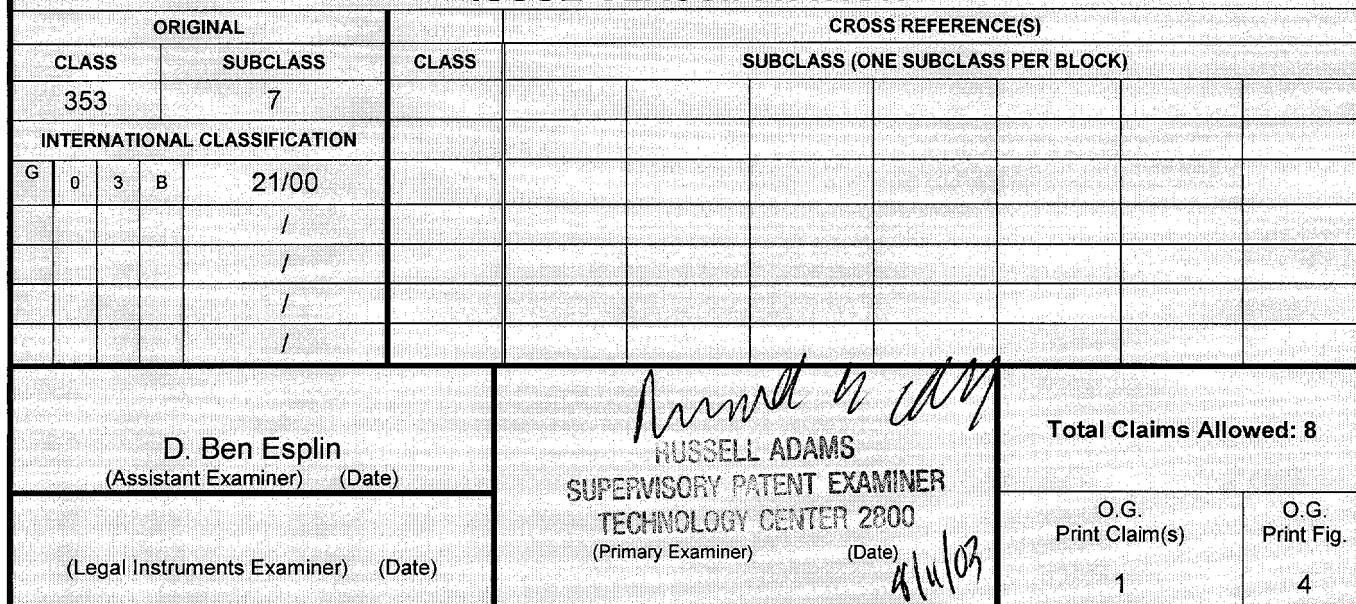 ORIGINAL CROSS REFERENCE(S)
CLASS SUBCLASS CLASS SUBCLASS (ONE SUBCLASS PER BLOCK)
353 7
INTERNATIONAL CLASSIFICATION
G 0 3 B 21/00
/
/
/
/
D. Ben Esplin
(Assistant Examiner) (Date)
(Legal Instruments Examiner) (Date)
RUSSELL ADAMS
SUPERVISORY PATENT EXAMINER
TECHNOLOGY CENTER 2800
(Primary Examiner) (Date)
8/11/03
Total Claims Allowed: 8
O.G. O.G.
Print Claim(s) Print Fig.
1 4